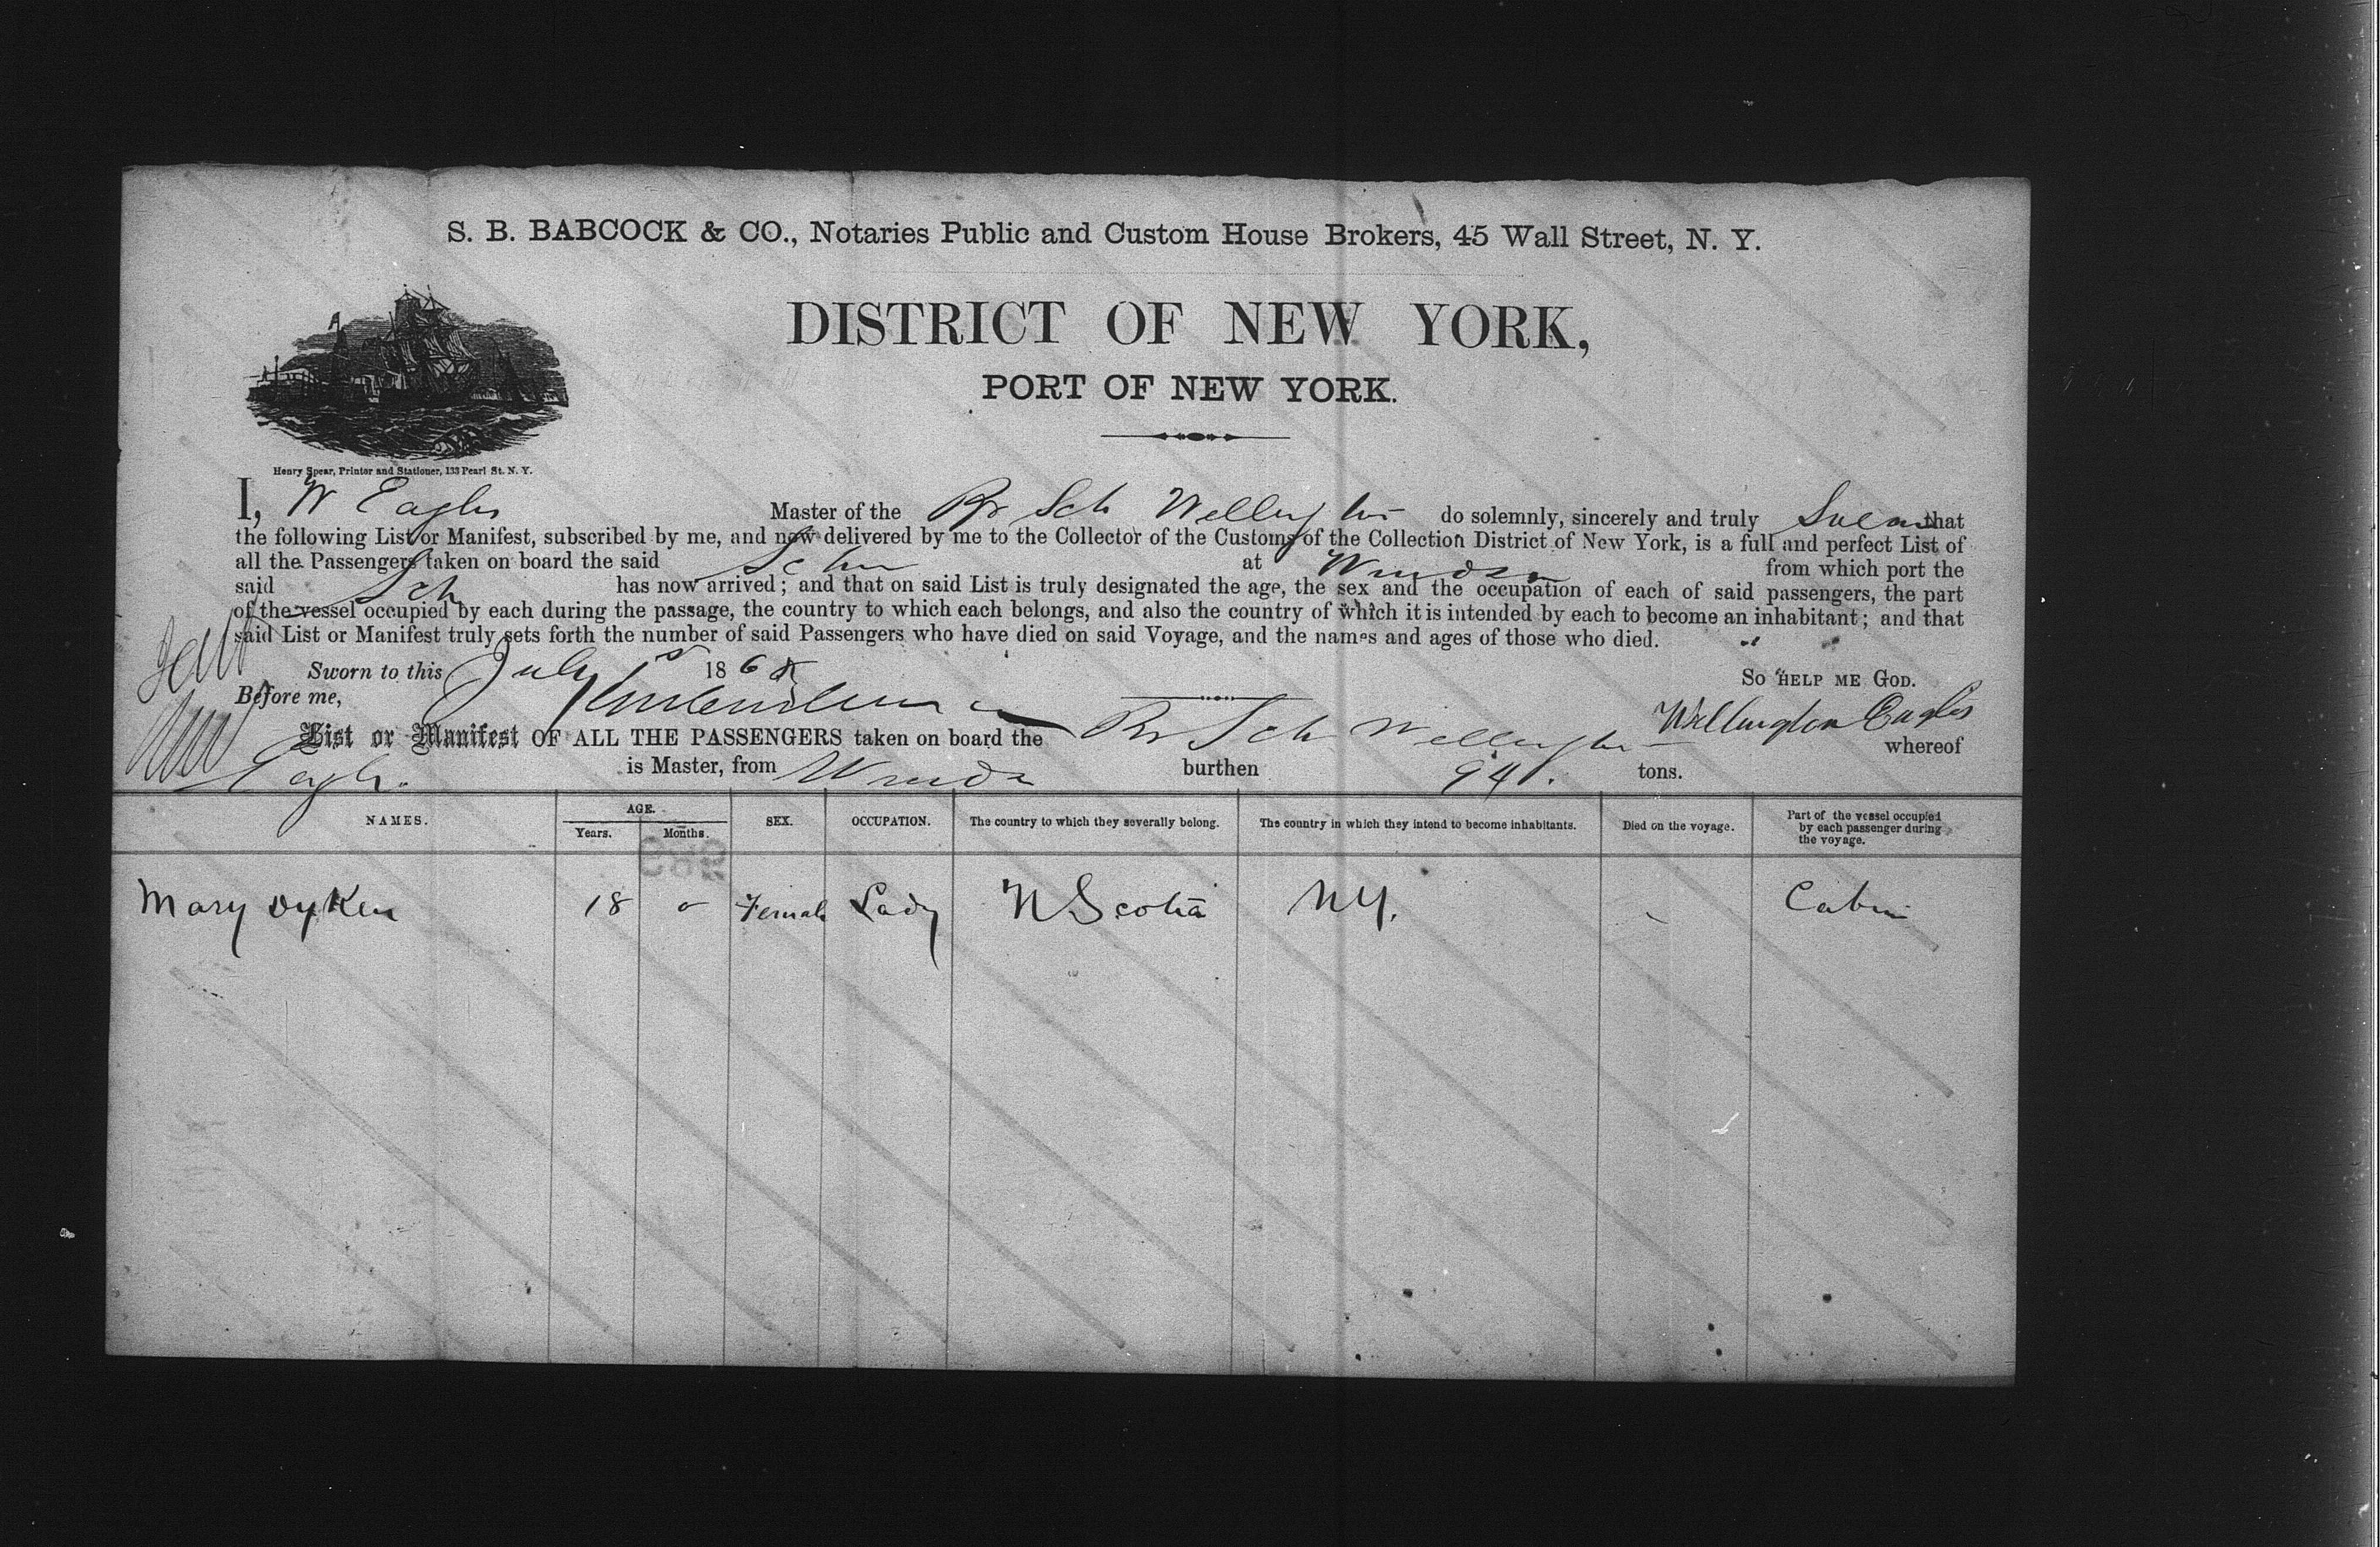 S. B. BABCOCK & CO., Notaries Public and Custom House Brokers, 45 Wall Street, N. Y.
DISTRICT OF NEW YORK,
PORT OF NEW YORK.
Henry Spear, Printer and Stationer, 133 Pearl St. N. Y.
I, W Eagles Master of the Br Sch Wellington do solemnly, sincerely and truly Swear that
the following List or Manifest, subscribed by me, and now delivered by me to the Collector of the Customs of the Collection District of New York, is a full and perfect List of
all the Passengers taken on board the said Schr at Windsor from which port the
said Sch has now arrived; and that on said List is truly designated the age, the sex and the occupation of each of said passengers, the part
of the vessel occupied by each during the passage, the country to which each belongs, and also the country of which it is intended by each to become an inhabitant; and that
said List or Manifest truly sets forth the number of said Passengers who have died on said Voyage, and the names and ages of those who died.
Sworn to this July 1st 1868
So HELP ME GOD.
Before me,
Wellington Eagles
List or Manifest OF ALL THE PASSENGERS taken on board the Br Sch Wellington whereof
Eagles is Master, from Windsor burthen 94 tons.
NAMES. AGE. Years. Months. SEX. OCCUPATION. The country to which they severally belong. The country in which they intend to become inhabitants. Died on the voyage. Part of the vessel occupied by each passenger during the voyage.
Mary Dyken 18 0 Female Lady N Scotia NY. - Cabin